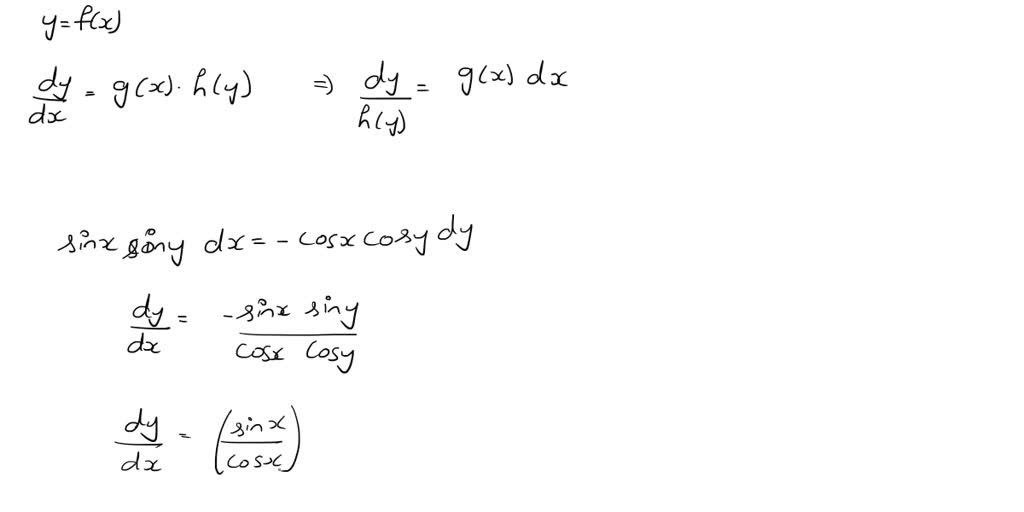 y=f(x)
dy/dx = g(x)· h(y) ⇒ dy/h(y) = g(x) dx
sinx siny dx = - cosx cosy dy
dy/dx = -sinx siny / cosx cosy
dy/dx = (sinx/cosx)